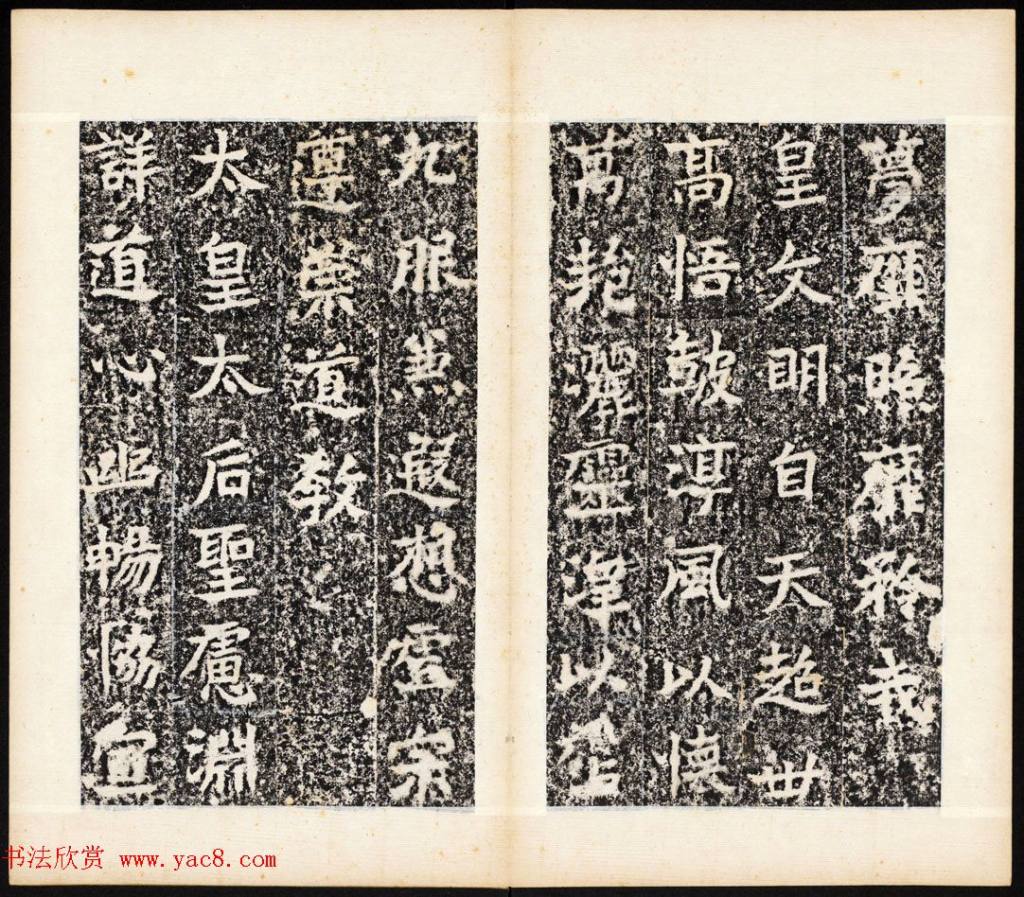 夢照我
皇文明自天超世
高悟鼓淳風以懷
萬灑靈津以
九服兼遐想虛宗
遵崇道教
太皇太后聖慮淵
詳道心幽暢協宣
书法欣赏 www.yac8.com